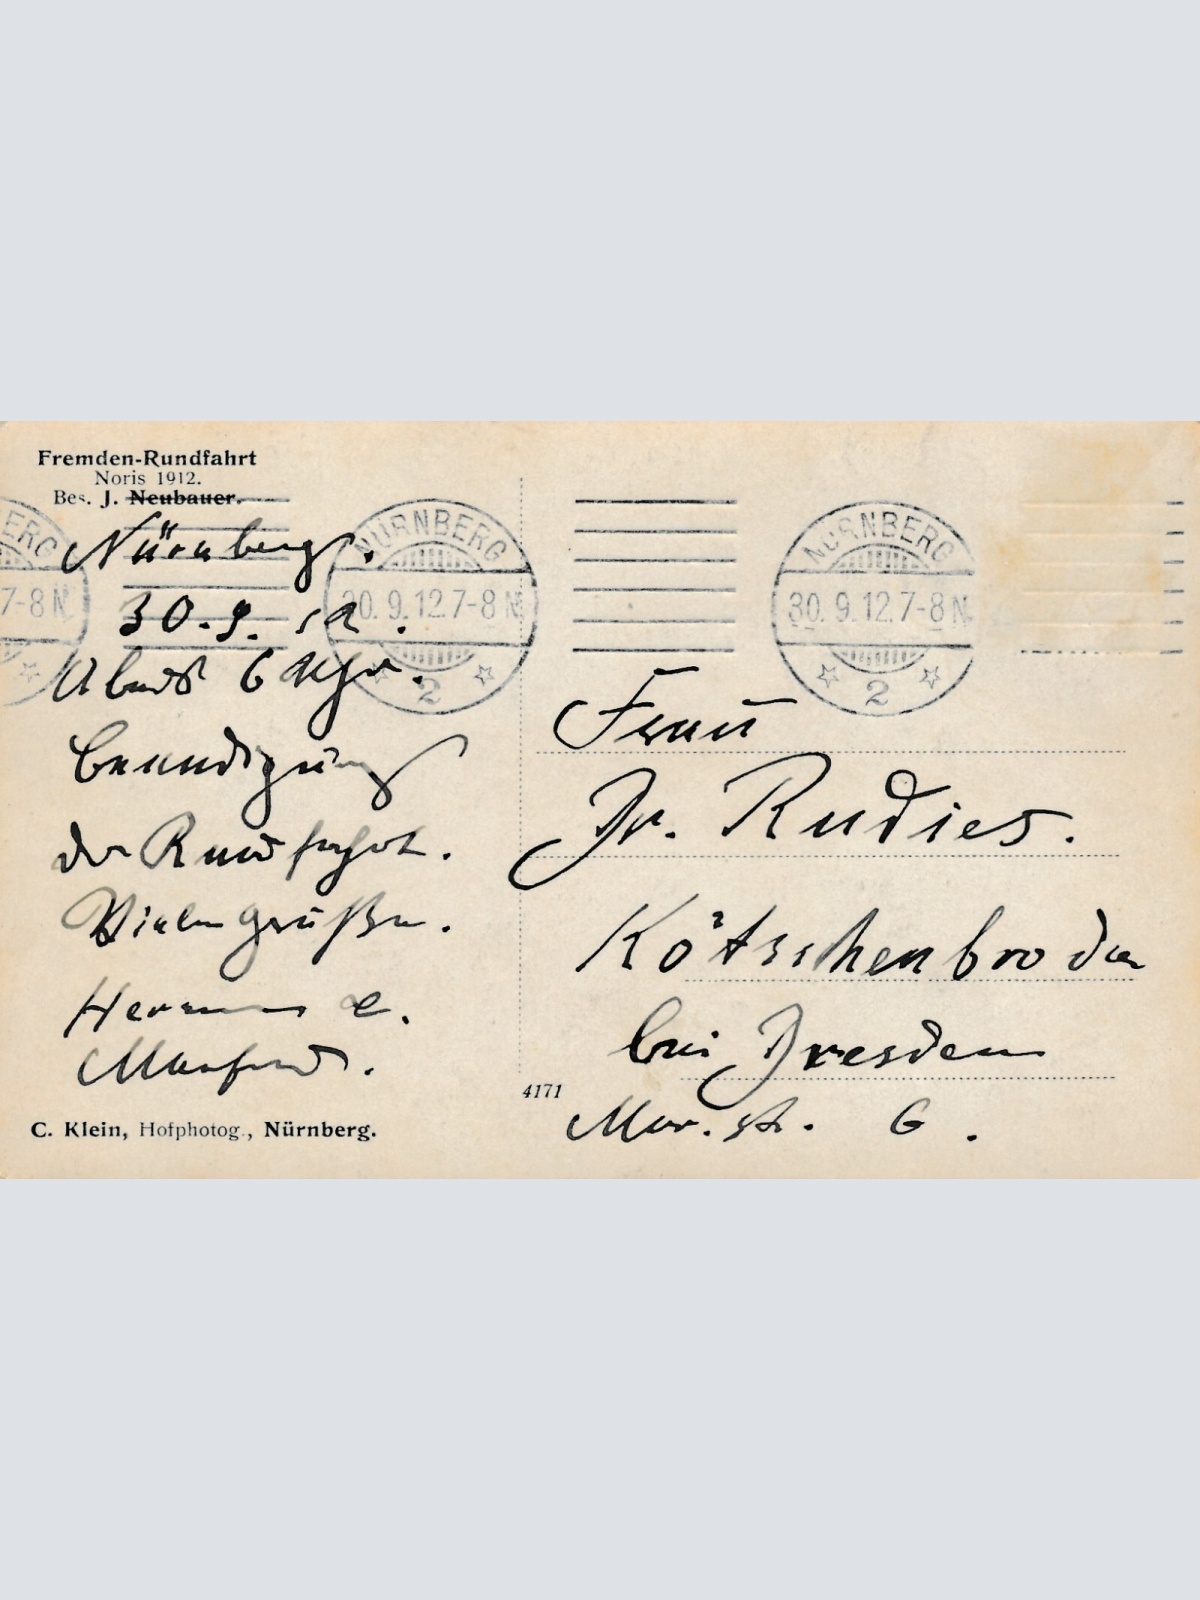 Fremden-Rundfahrt
Noris 1912.
Bes. J. Neubauer.
Nürnberg.
30.9.12.
Abends 6 Uhr.
Beendigung
der Rundfahrt.
Viele Grüße.
Hermann e.
Manfred.
C. Klein, Hofphotog., Nürnberg.
4171
ERG
7-8 N
NÜRNBERG
30. 9. 12. 7-8 N
2
NÜRNBERG
30. 9. 12. 7-8 N
2
Frau
Dr. Rudies.
Kötzschenbroda
bei Dresden
Mor. str. 6.